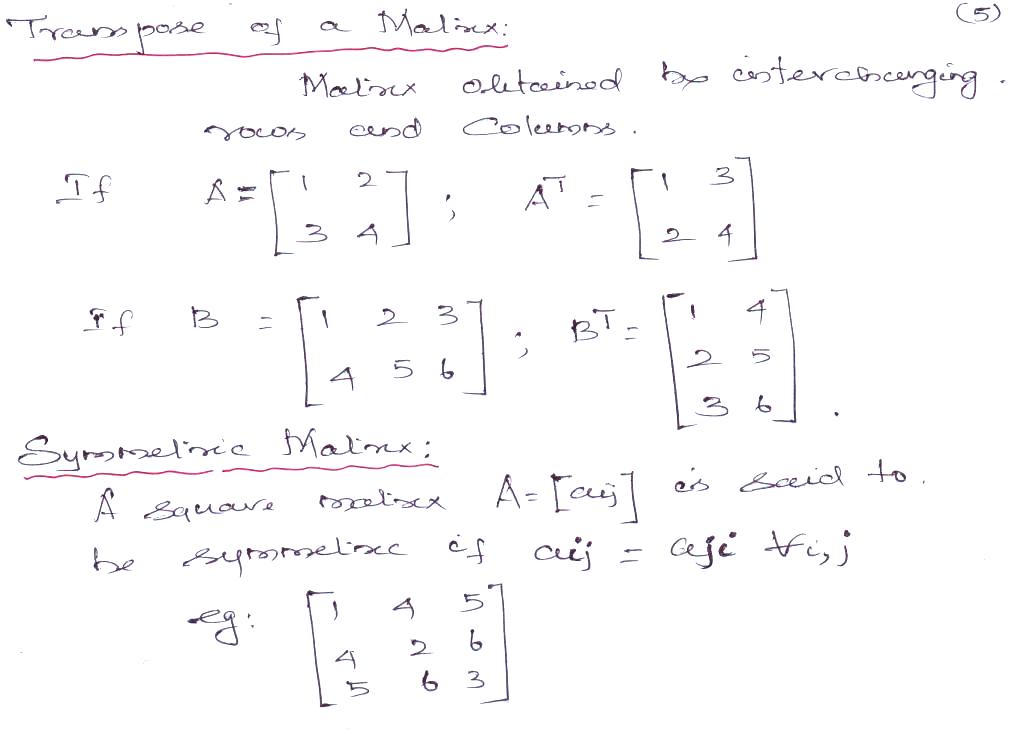 (5)
Transpose of a Matrix:
Matrix obtained by interchanging.
rows and Columns.
If A = [ 1 2 ; Aᵀ = [ 1 3
3 4 ] 2 4 ]
If B = [ 1 2 3 ; Bᵀ = [ 1 4
4 5 6 ] 2 5
3 6 ] .
Symmetric Matrix:
A square matrix A = [aij] is said to.
be symmetric if aij = aji ∀i,j
eg: [ 1 4 5
4 2 6
5 6 3 ]